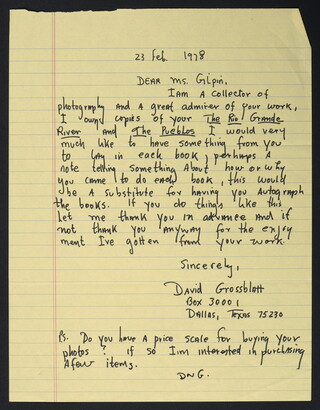 23 Feb. 1978
DEAR Ms. Gilpin,
I AM A collector of
photography and a great admirer of your work,
I own copies of your The Rio Grande
River and The Pueblos I would very
much like to have something from you
to lay in each book, perhaps a
note telling something About how or why
you came to do each book, this would
be A substitute for having you Autograph
the books. If you do things like this
let me thank you in advance and if
not thank you anyway for the enjoy
ment I've gotten from your work.
Sincerely,
David Grossblatt
Box 30001
Dallas, Texas 75230
Ps. Do you have a price scale for buying your
photos? if so I'm interested in purchasing
A few items.
DNG.